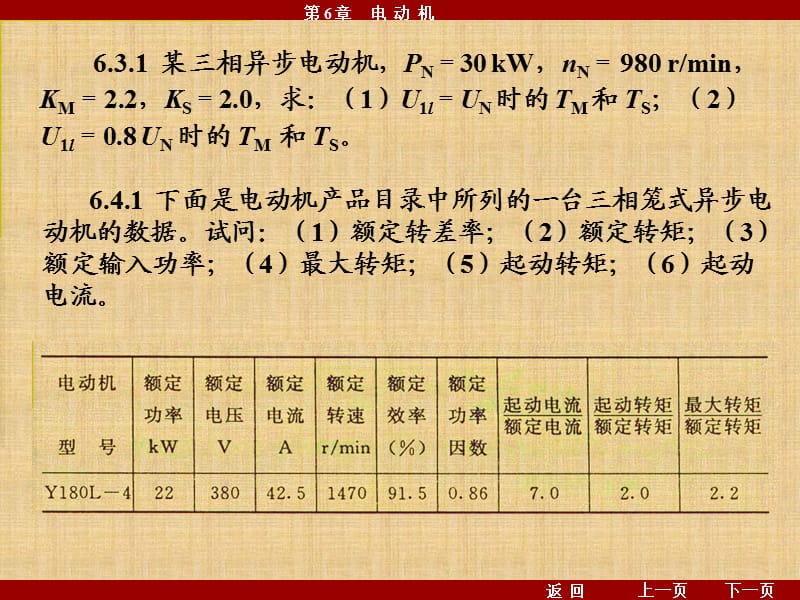 第6章 电动机
6.3.1 某三相异步电动机，PN = 30 kW，nN = 980 r/min，
KM = 2.2，KS = 2.0，求：（1）U1l = UN 时的 TM 和 TS；（2）
U1l = 0.8 UN 时的 TM 和 TS。
6.4.1 下面是电动机产品目录中所列的一台三相笼式异步电
动机的数据。试问：（1）额定转差率；（2）额定转矩；（3）
额定输入功率；（4）最大转矩；（5）起动转矩；（6）起动
电流。
电动机 型号 额定功率 kW 额定电压 V 额定电流 A 额定转速 r/min 额定效率 (%) 额定功率因数 起动电流/额定电流 起动转矩/额定转矩 最大转矩/额定转矩
Y180L－4 22 380 42.5 1470 91.5 0.86 7.0 2.0 2.2
返回 上一页 下一页